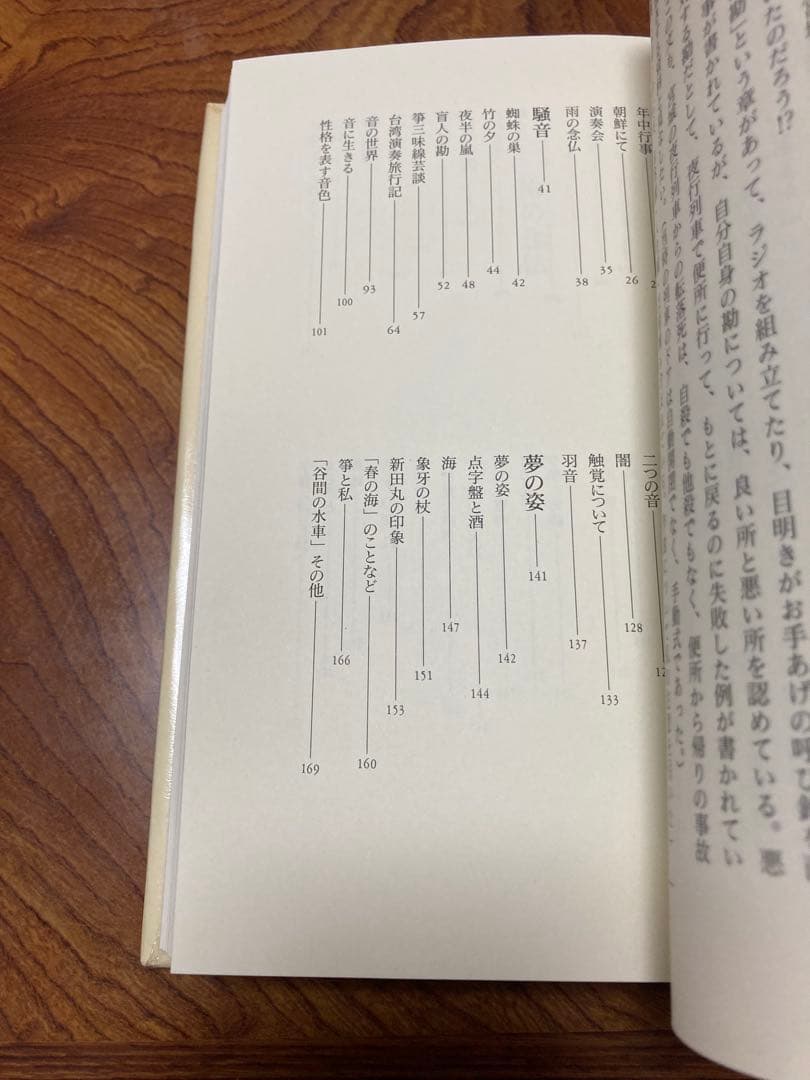 たのだろう!?
という章があって、ラジオを組み立てたり、目明きがお手あげの呼び
事が書かれているが、自分自身の勘については、良い所と悪い所を認めている。悪
する勘だとして、夜行列車で便所に行って、もとに戻るのに失敗した例が書かれてい
夜行列車からの転落死は、自殺でも他殺でもなく、便所から帰りの事故
自動開閉でなく、手動式であった。)
年中行事
朝鮮にて 26
演奏会 35
雨の念仏 38
騒音 41
蜘蛛の巣 42
竹の夕 44
夜半の嵐 48
盲人の勘 52
箏三味線芸談 57
台湾演奏旅行記 64
音の世界 93
音に生きる 100
性格を表す音色 101
二つの音
闇 128
触覚について 133
羽音 137
夢の姿 141
夢の姿 142
点字盤と酒 144
海 147
象牙の杖 151
新田丸の印象 153
「春の海」のことなど 160
箏と私 166
「谷間の水車」その他 169